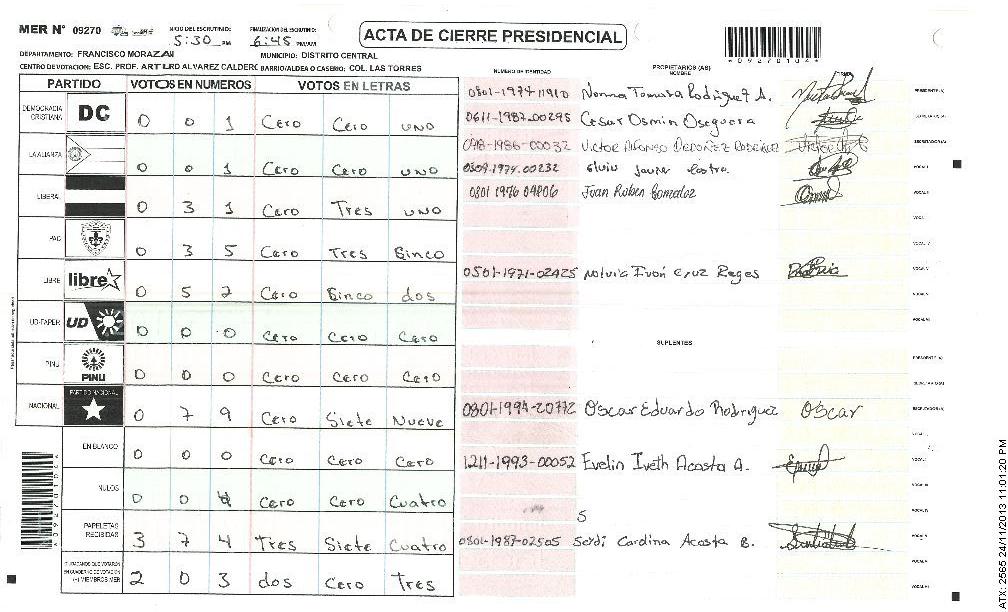 MER N° 09270 INICIO DEL ESCRUTINIO: 5:30 PM FINALIZACION DEL ESCRUTINIO: 6:45 PM/AM
ACTA DE CIERRE PRESIDENCIAL
*09270104*
DEPARTAMENTO: FRANCISCO MORAZAN MUNICIPIO: DISTRITO CENTRAL
CENTRO DE VOTACION: ESC. PROF. ARTURO ALVAREZ CALDERO BARRIO/ALDEA O CASERIO: COL. LAS TORRES
PARTIDO VOTOS EN NUMEROS VOTOS EN LETRAS
DEMOCRACIA CRISTIANA DC 0 0 1 Cero Cero uno
LA ALIANZA 0 0 1 Cero Cero uno
LIBERAL 0 3 1 Cero Tres uno
PAC 0 3 5 Cero Tres Cinco
LIBRE libre 0 5 2 Cero Cinco dos
UD-FAPER UD 0 0 0 Cero Cero Cero
PINU PINU 0 0 0 Cero Cero Cero
NACIONAL PARTIDO NACIONAL 0 7 9 Cero Siete Nueve
EN BLANCO 0 0 0 Cero Cero Cero
NULOS 0 0 4 Cero Cero Cuatro
PAPELETAS RECIBIDAS 3 7 4 Tres Siete Cuatro
CIUDADANOS QUE VOTARON EN CUADERNO DE VOTACION (+) MIEMBROS MER 2 0 3 dos Cero Tres
NUMERO DE IDENTIDAD PROPIETARIOS (AS) NOMBRE FIRMA
0801-1974-11910 Norma Tomasa Rodriguez A. PRESIDENTE (A)
0611-1987-00295 Cesar Osmin Oseguera SECRETARIO (A)
1986-00032 Victor Alfonso Ordoñez Rodriguez ESCRUTADOR (A)
0509-1974-00232 Elvin Javier Castro. VOCAL I
0801 1976 04806 Juan Ruben Gomez VOCAL II
VOCAL III
VOCAL IV
0501-1971-02425 Nolvia Ivon Cruz Reyes VOCAL V
VOCAL VI
VOCAL VII
SUPLENTES
PRESIDENTE (A)
SECRETARIO (A)
0801-1994-20772 Oscar Eduardo Rodriguez Oscar ESCRUTADOR (A)
VOCAL I
1211-1993-00052 Evelin Iveth Acosta A. VOCAL II
VOCAL III
VOCAL IV
S
0801-1987-02505 Seydi Carolina Acosta B. VOCAL V
VOCAL VI
VOCAL VII
ATX: 2565 24/11/2013 11:01:20 PM